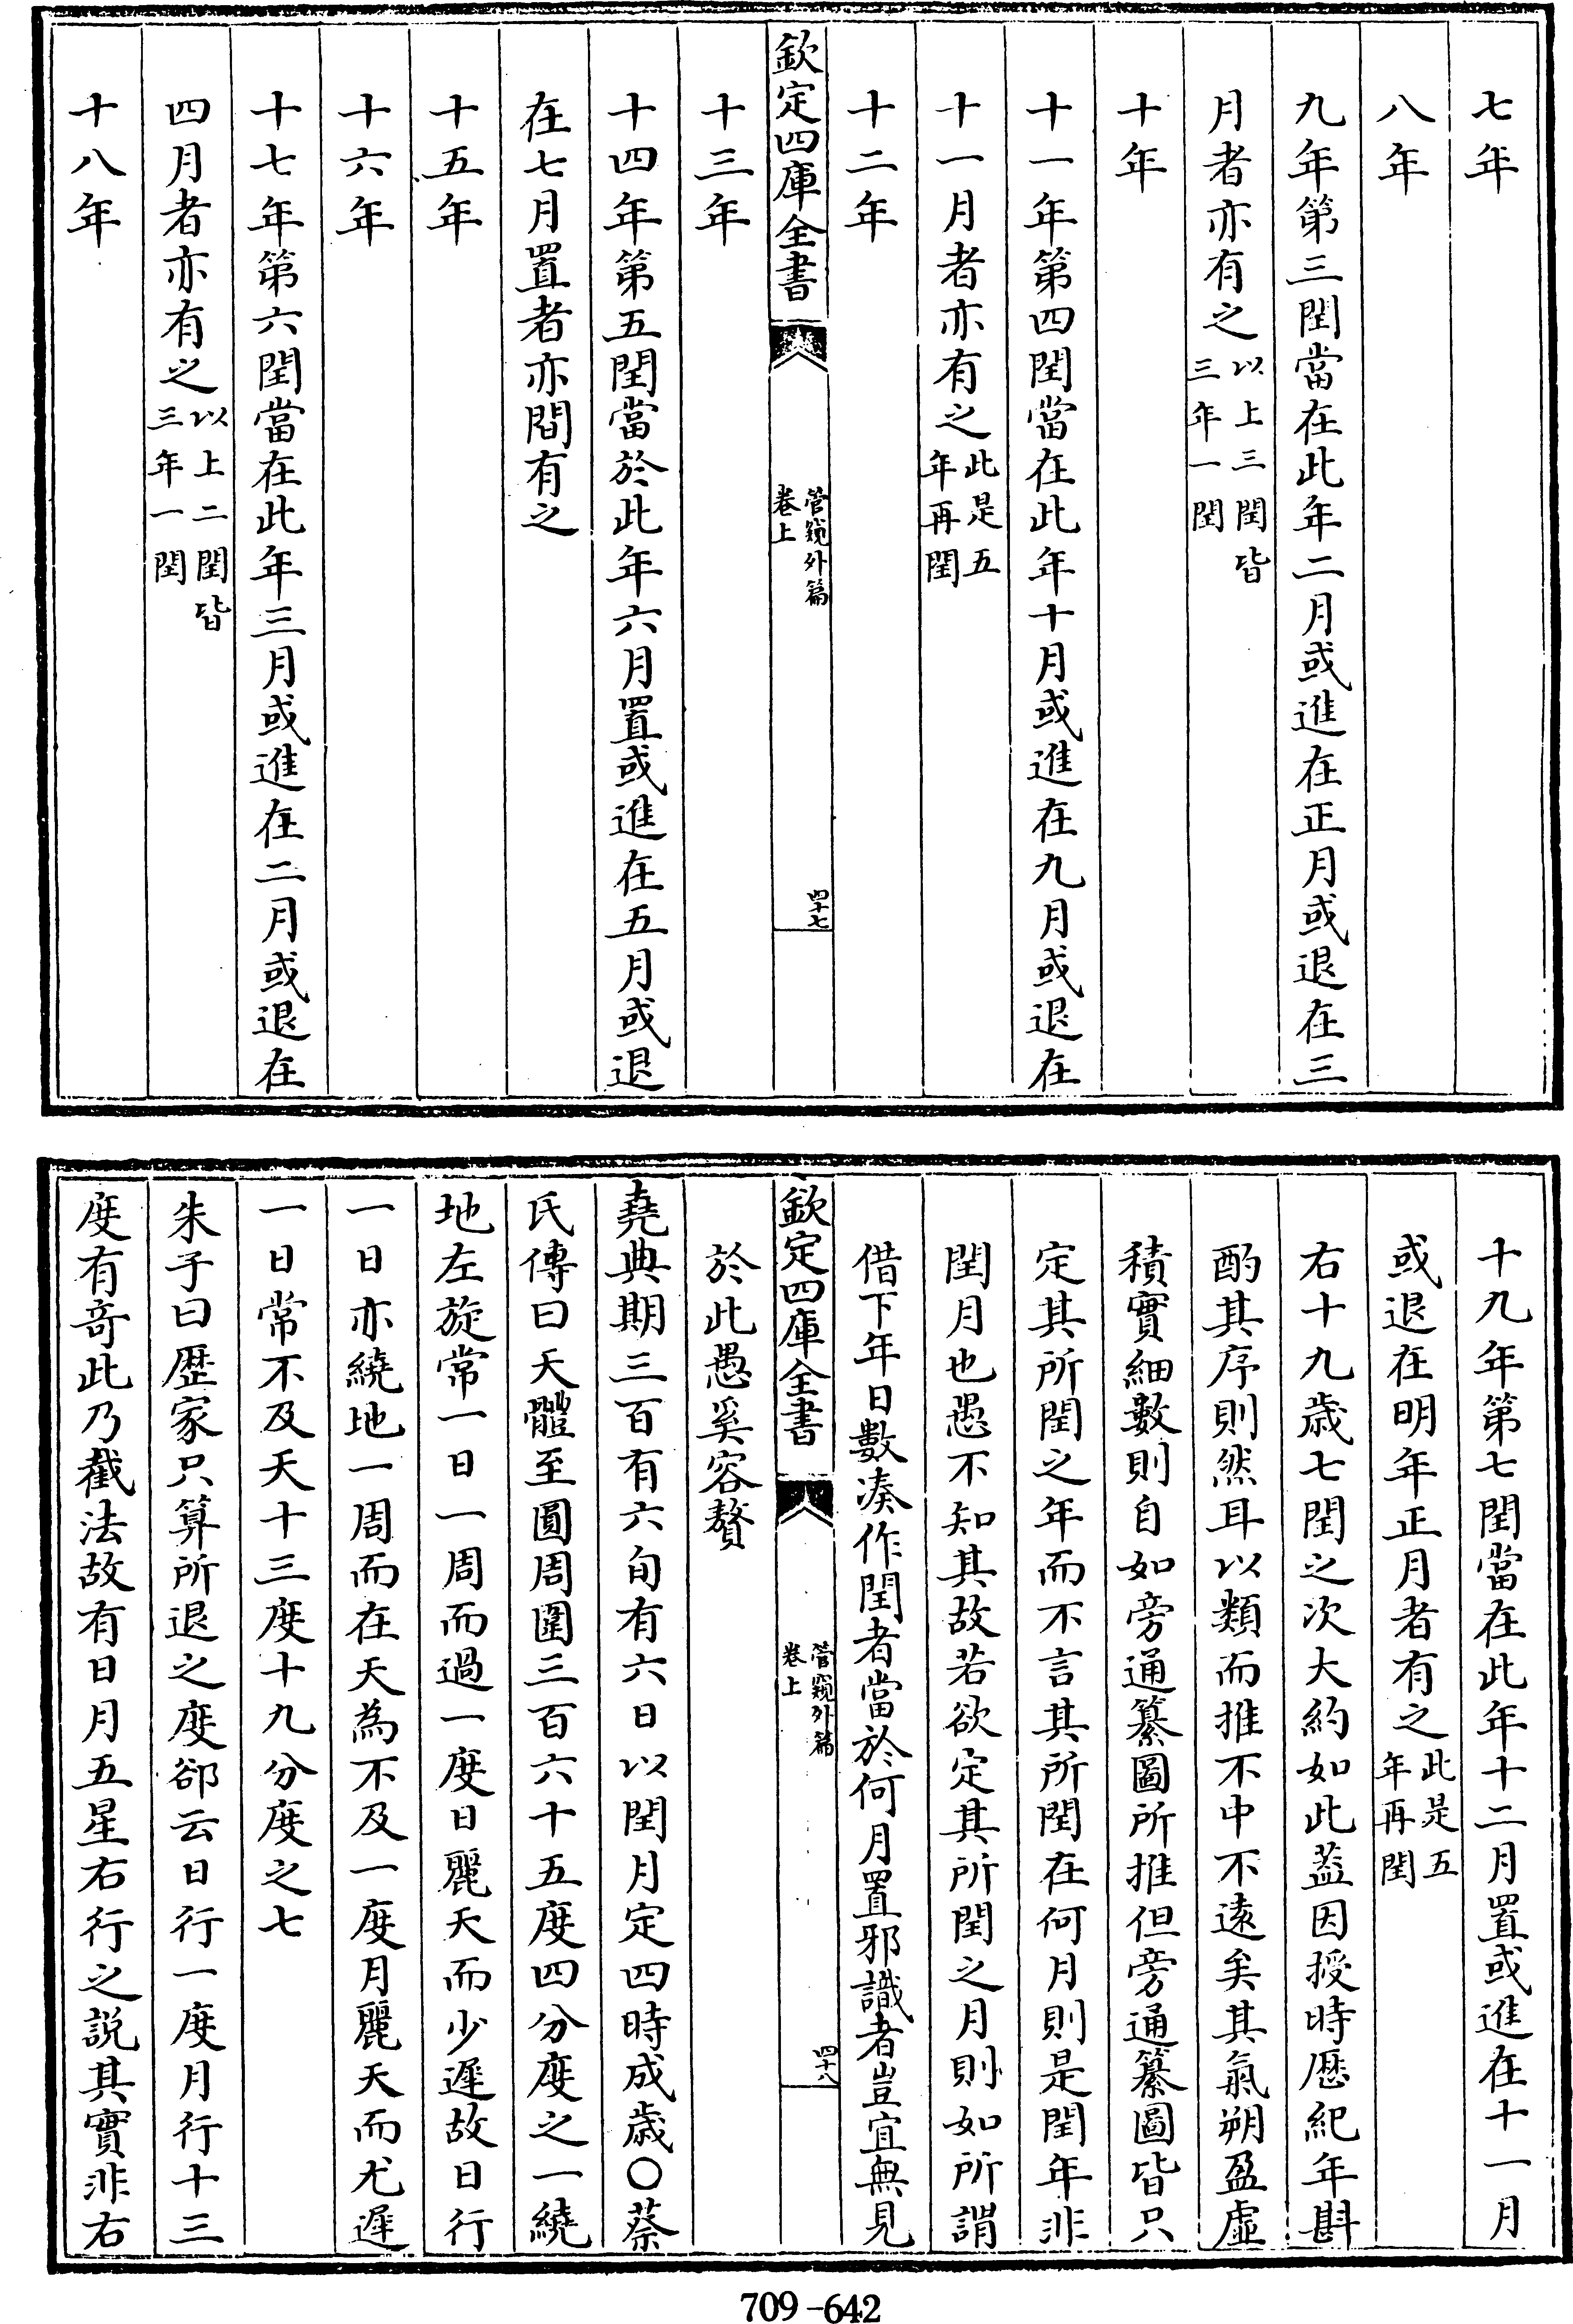 七年
八年
九年第三閏當在此年二月或進在正月或退在三
月者亦有之以上三閏皆三年一閏
十年
十一年第四閏當在此年十月或進在九月或退在
十一月者亦有之此是五年再閏
十二年
欽定四庫全書
管窺外篇
卷上
四十七
十三年
十四年第五閏當於此年六月置或進在五月或退
在七月置者亦間有之
十五年
十六年
十七年第六閏當在此年三月或進在二月或退在
四月者亦有之以上二閏皆三年一閏
十八年
十九年第七閏當在此年十二月置或進在十一月
或退在明年正月者有之此是五年再閏
右十九歲七閏之次大約如此葢因授時歴紀年斟
酌其序則然耳以類而推不中不遠矣其氣朔盈虛
積實細數則自如旁通纂圖所推但旁通纂圖皆只
定其所閏之年而不言其所閏在何月則是閏年非
閏月也愚不知其故若欲定其所閏之月則如所謂
借下年日數湊作閏者當於何月置邪識者豈宜無見
欽定四庫全書
管窺外篇
卷上
四十八
於此愚奚容贅
堯典期三百有六旬有六日以閏月定四時成歲○蔡
氏傳曰天體至圓周圍三百六十五度四分度之一繞
地左旋常一日一周而過一度日麗天而少遲故日行
一日亦繞地一周而在天為不及一度月麗天而尤遲
一日常不及天十三度十九分度之七
朱子曰歴家只算所退之度郤云日行一度月行十三
度有奇此乃截法故有日月五星右行之說其實非右
709-642